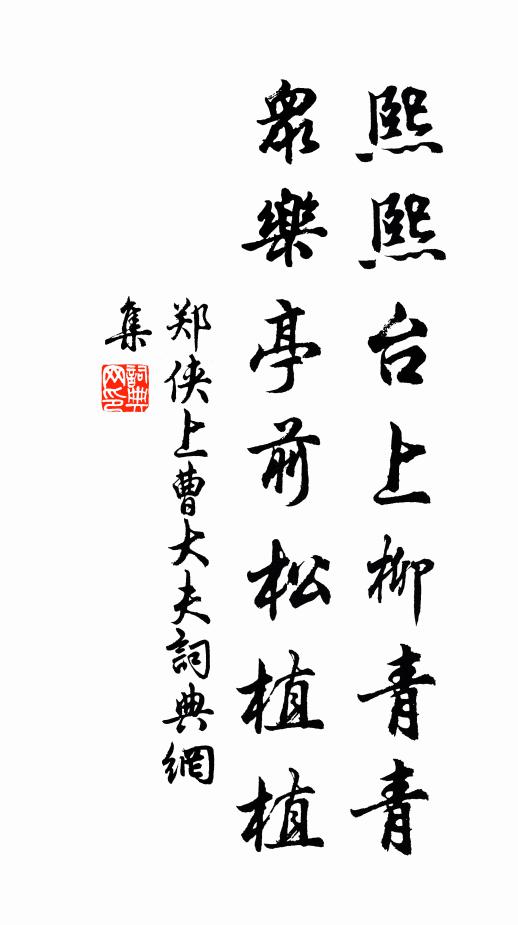 熙熙台上柳青青
眾樂亭前松植植
郑侠上曹大夫詞典網
集
詞典
网印